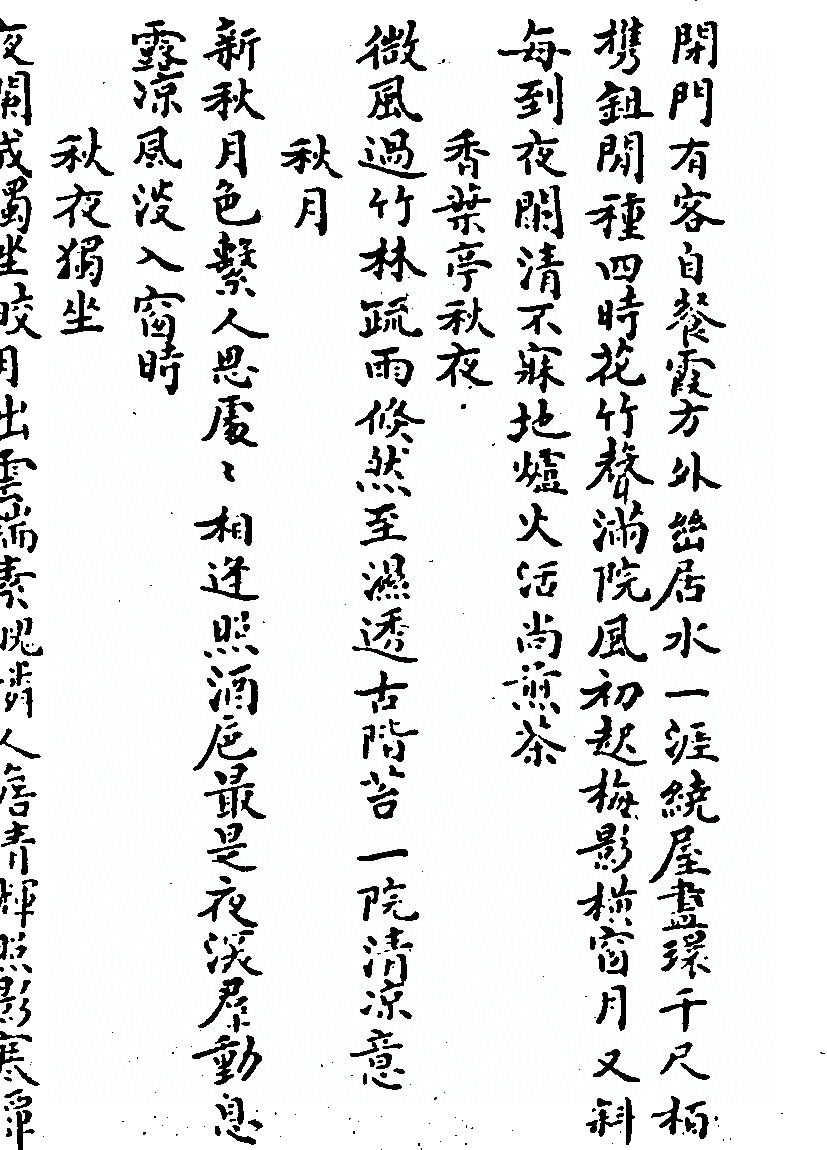 閉門有客自餐霞方外幽居水一涯繞屋盡環千尺栢
携鉏閒種四時花竹聲滿院風初起梅影横窗月又斜
每到夜闌清不寐地爐火活尚煎茶
香葉亭秋夜
微風過竹林疏雨倐然至濕透古階苔一院清凉意
秋月
新秋月色繫人思處〻相逢照酒巵最是夜深群動息
露凉風淡入窗時
秋夜獨坐
夜闌成獨坐皎月出雲端素魄憐人
青輝照影寒